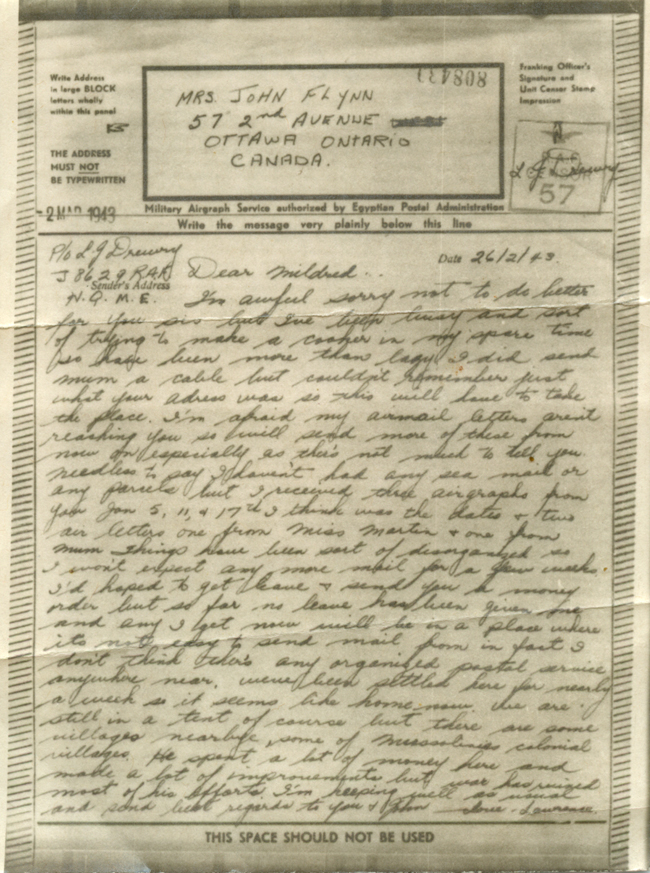 Write Address
in large BLOCK
letters wholly
within this panel
THE ADDRESS
MUST NOT
BE TYPEWRITTEN
808433
MRS. JOHN FLYNN
57 2nd AVENUE
OTTAWA ONTARIO
CANADA.
Franking Officer's
Signature and
Unit Censor Stamp
Impression
L G Drewry
57
2 MAR 1943
Military Airgraph Service authorized by Egyptian Postal Administration
Write the message very plainly below this line
P/o L G Drewry
J 8629 RAF
Sender's Address
H.Q. M.E.
Date 26/2/43.
Dear Mildred..
I'm awful sorry not to do better
for you sis but I've been busy and sort
of trying to make a cooker in my spare time
so have been more than lazy. I did send
mum a cable but couldn't remember just
what your adress was so this will have to take
the place. I'm afraid my airmail letters aren't
reaching you so will send more of these from
now on especially as ther's not much to tell you.
needless to say I haven't had any sea mail or
any parcels but I received three airgraphs from
you Jan 5, 11, & 17th I think was the dates & two
air letters one from Miss Martin & one from
mum. Things have been sort of disorganized so
I won't expect any more mail for a few weeks.
I'd hoped to get leave & send you a money
order but so far no leave has been given me
and any I get now will be in a place where
its not easy to send mail from in fact I
don't think there's any organised postal service
anywhere near. weve been settled here for nearly
a week so it seems like home now. we are
still in a tent of course but there are some
villages nearbye, some of Mussolinies colonial
villages. He spent a lot of money here and
made a lot of improvements but war has ruined
most of his efforts. I'm keeping well as usual
and send best regards to you & John Love - Lawrence.
THIS SPACE SHOULD NOT BE USED